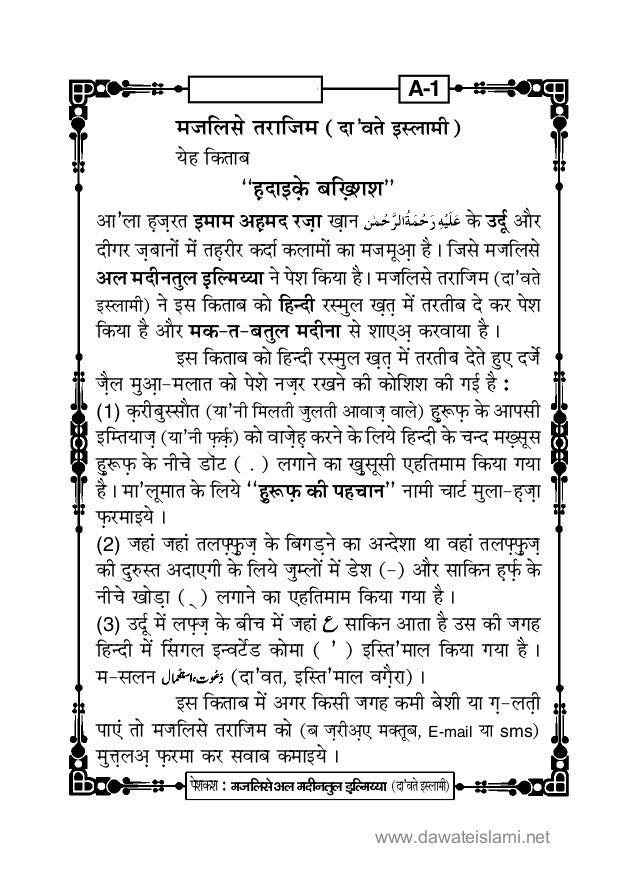 A-1
मजलिसे तराजिम ( दा'वते इस्लामी )
येह किताब
“ह़दाइक़े बख़्शिश”
आ'ला ह़ज़रत इमाम अह़मद रज़ा ख़ान عَلَيْهِ رَحْمَةُ الرَّحْمٰن के उर्दू और
दीगर ज़बानों में तह़रीर कर्दा कलामों का मजमूआ़ है । जिसे मजलिसे
अल मदीनतुल इ़ल्मिय्या ने पेश किया है। मजलिसे तराजिम (दा'वते
इस्लामी) ने इस किताब को हिन्दी रस्मुल ख़त़ में तरतीब दे कर पेश
किया है और मक-त-बतुल मदीना से शाएअ़ करवाया है ।
इस किताब को हिन्दी रस्मुल ख़त़ में तरतीब देते हुए दर्जे
ज़ैल मुआ़-मलात को पेशे नज़र रखने की कोशिश की गई है :
(1) क़रीबुस्सौत (या'नी मिलती जुलती आवाज़ वाले) हुरूफ़ के आपसी
इम्तियाज़ (या'नी फ़र्क़) को वाज़ेह़ करने के लिये हिन्दी के चन्द मख़्सूस
हु़रूफ़ के नीचे डॉट ( . ) लगाने का ख़ुसूसी एहतिमाम किया गया
है । मा'लूमात के लिये “हु़रूफ़ की पहचान” नामी चार्ट मुला-ह़ज़ा
फ़रमाइये ।
(2) जहां जहां तलफ़्फ़ुज़ के बिगड़ने का अन्देशा था वहां तलफ़्फ़ुज़
की दुरुस्त अदाएगी के लिये जुम्लों में डेश (-) और साकिन ह़र्फ़ के
नीचे खोड़ा ( ् ) लगाने का एहतिमाम किया गया है ।
(3) उर्दू में लफ़्ज़ के बीच में जहां ع साकिन आता है उस की जगह
हिन्दी में सिंगल इन्वर्टेड कोमा ( ' ) इस्ति'माल किया गया है ।
म-सलन دعوت، استعمال (दा'वत, इस्ति'माल वग़ैरा) ।
इस किताब में अगर किसी जगह कमी बेशी या ग़-लत़ी
पाएं तो मजलिसे तराजिम को (ब ज़रीअ़ए मक्तूब, E-mail या sms)
मुत़्त़लअ़ फ़रमा कर सवाब कमाइये ।
पेशकश : मजलिसे अल मदीनतुल इ़ल्मिय्या (दा'वते इस्लामी)
www.dawateislami.net